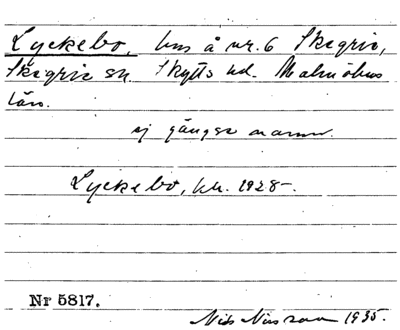 Lyckebo, hus å nr. 6 Skegrie,
Skegrie sn. Skytts hd. Malmöhus
län.
ej gängse namn.
Lyckebo, kk. 1928-.
Nr 5817.
Nils Nilsson 1935.